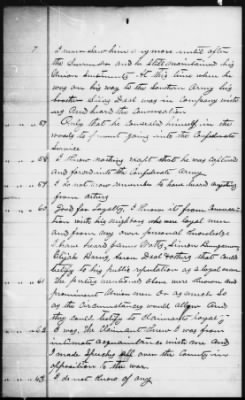 7 I never saw him any more until after
the Surrender and he still maintained his
Union Sentiments. At this time when he
was on his way to the Southern Army his
brother being Dead was in company with
me and heard the conversation
" " " 57 Only that he concealed himself in the
woods to prevent going into the Confederate
Service
" " " 58 I know nothing except that he was captured
and forced into the Confederate Army
" " " 59 I do not now remember to have heard anything
from acting
" " " 60 Good for Loyalty, I know it from conversa-
tion with his neighbors who were loyal men
and from my own personal knowledge
I have heard James Watts, Simon Bingaman
Elijah Harris, Aaron Deal & others that could
testify to his public reputation as a loyal man
The parties mentioned above were known and
prominent Union men or as much so
as the circumstances would allow and
they could testify to Claimants loyalty
" " " 62 I was, the Claimant knew I was from
intimate acquaintance with me and
I made Speechs all over the County in
opposition to the war.
" " " 63 I do not know of any